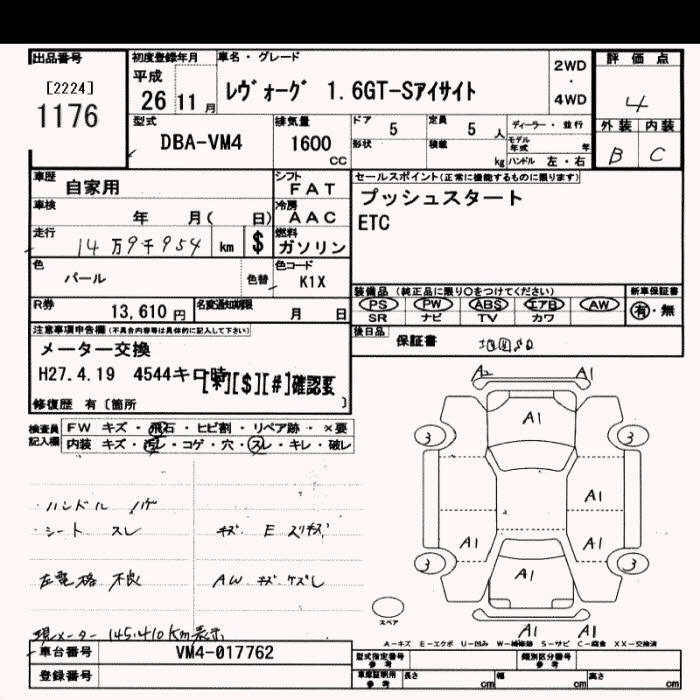 出品番号
[2224]
1176
初度登録年月
平成
26 11 月
車名・グレード
レヴォーグ 1.6GT-Sアイサイト
2WD
・
4WD
評価点
4
外装 内装
B C
型式
DBA-VM4
排気量
1600
CC
ドア 5
定員 5 人
ディーラー・並行
形状
積載 kg
モデル年式 年
ハンドル 左・右
車歴 自家用
シフト
FAT
車検
年 月( 日)
冷房
AAC
走行
14万9千954 km $
燃料
ガソリン
色
パール
色替
色コード
K1X
R券
13,610 円
名変通知期限
月 日
セールスポイント(正常に機能するものに限ります)
プッシュスタート
ETC
装備品(純正品に限り○をつけてください)
新車保証書
PS PW ABS エアB AW
有・無
SR ナビ TV カワ
後日品
保証書
注意事項申告欄(不具合内容等は具体的に記入して下さい)
メーター交換
H27.4.19 4544キロ時
[*][$][#]確認要
修復歴 有[箇所 ]
検査員
記入欄
FW キズ・飛石・ヒビ割・リペア跡・×要
内装 キズ・汚レ・コゲ・穴・スレ・キレ・破レ
ハンドル ハゲ
シート スレ
キズ E スリキズ
左電格 不良
AW キズ ケズレ
現メーター 145,410km表示
A2 A1
A1
3 3
A1
A1 A1
3 3
A1
A1 A1
スペア
A-キズ E-エクボ U-凹み W-補修跡 S-サビ C-腐食 XX-交換済
車台番号
VM4-017762
登録番号
型式指定番号
参考
類別区分番号
参考
車庫証明用
参考
長さ cm
幅 cm
高さ cm